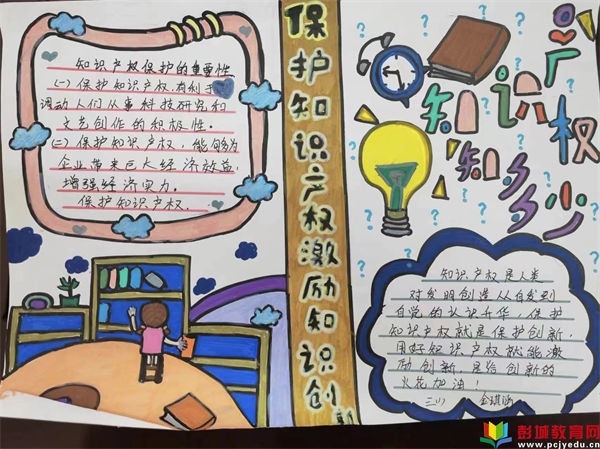 知识产权保护的重要性
(一)保护知识产权有利于
调动人们从事科技研究和
文艺创作的积极性。
(二)保护知识产权,能够为
企业带来巨大经济效益,
增强经济实力。
保护知识产权.
保护知识产权激励知识创新
知识产权
知多少
知识产权是人类
对发明创造从自发到
自觉的认识升华,保护
知识产权就是保护创新,
用好知识产权就能激
励创新,是给创新的
火花加油!
三(1) 金琪涵
彭城教育网
www.pcjyedu.cn